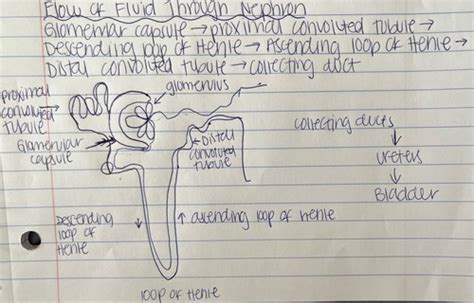 Flow of Fluid Through Nephron
Glomerular capsule → proximal convoluted tubule →
Descending loop of Henle → Ascending loop of Henle →
Distal convoluted tubule → collecting duct
glomerulus
proximal
convoluted
tubule
Glomerular
capsule
Distal
convoluted
tubule
collecting ducts
ureters
Bladder
Descending
loop of
Henle
ascending loop of Henle
loop of Henle